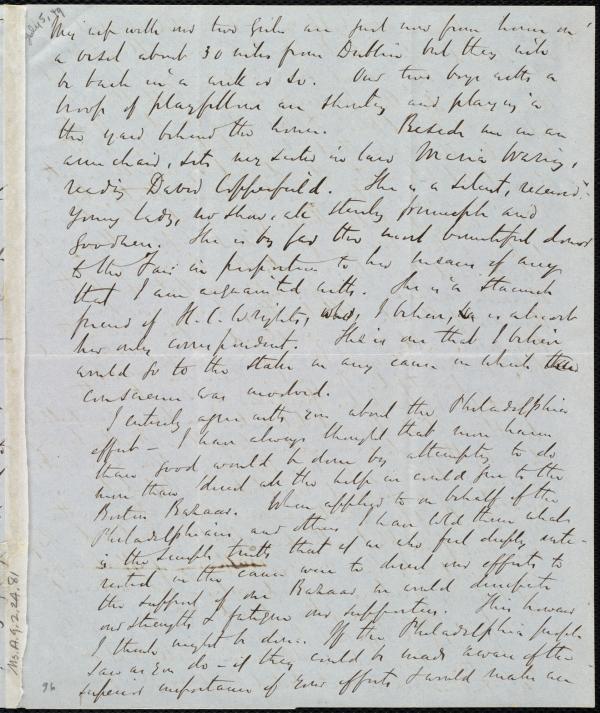 July 5, 49
My wife with our two girls are just now from home on
a visit about 30 miles from Dublin but they will
be back in a week or so. Our two boys with a
troop of playfellows are shouting and playing in
the yard behind the house. Beside me in an
arm chair, sits my sister in law Maria Waring,
reading David Copperfield. She is a silent, reserved
young lady, no show, all sterling principle and
goodness. She is by far the most bountiful donor
to the Fair in proportion to her means of any
that I am acquainted with. She is a staunch
friend of H. C. Wright's, who, I believe, is almost
her only correspondent. She is one that I believe
would go to the stake in any cause in which
conscience was involved.
I entirely agree with you about the Philadelphia
effort - I have always thought that more harm
than good would be done by attempting to do
more than direct all the help we could give to the
Boston Bazaar. When applied to on behalf of the
Philadelphians and others I have told them what
is the simple truth that if we who feel deeply inte-
rested in the cause were to direct our efforts to
the support of one Bazaar we would dissipate
our strength & fatigue our supporters. This however
I think might be done. If the Philadelphia people
saw as you do - if they could be made aware of the
superior importance of your efforts & would make an
Ms.A.9.2.24.81
96